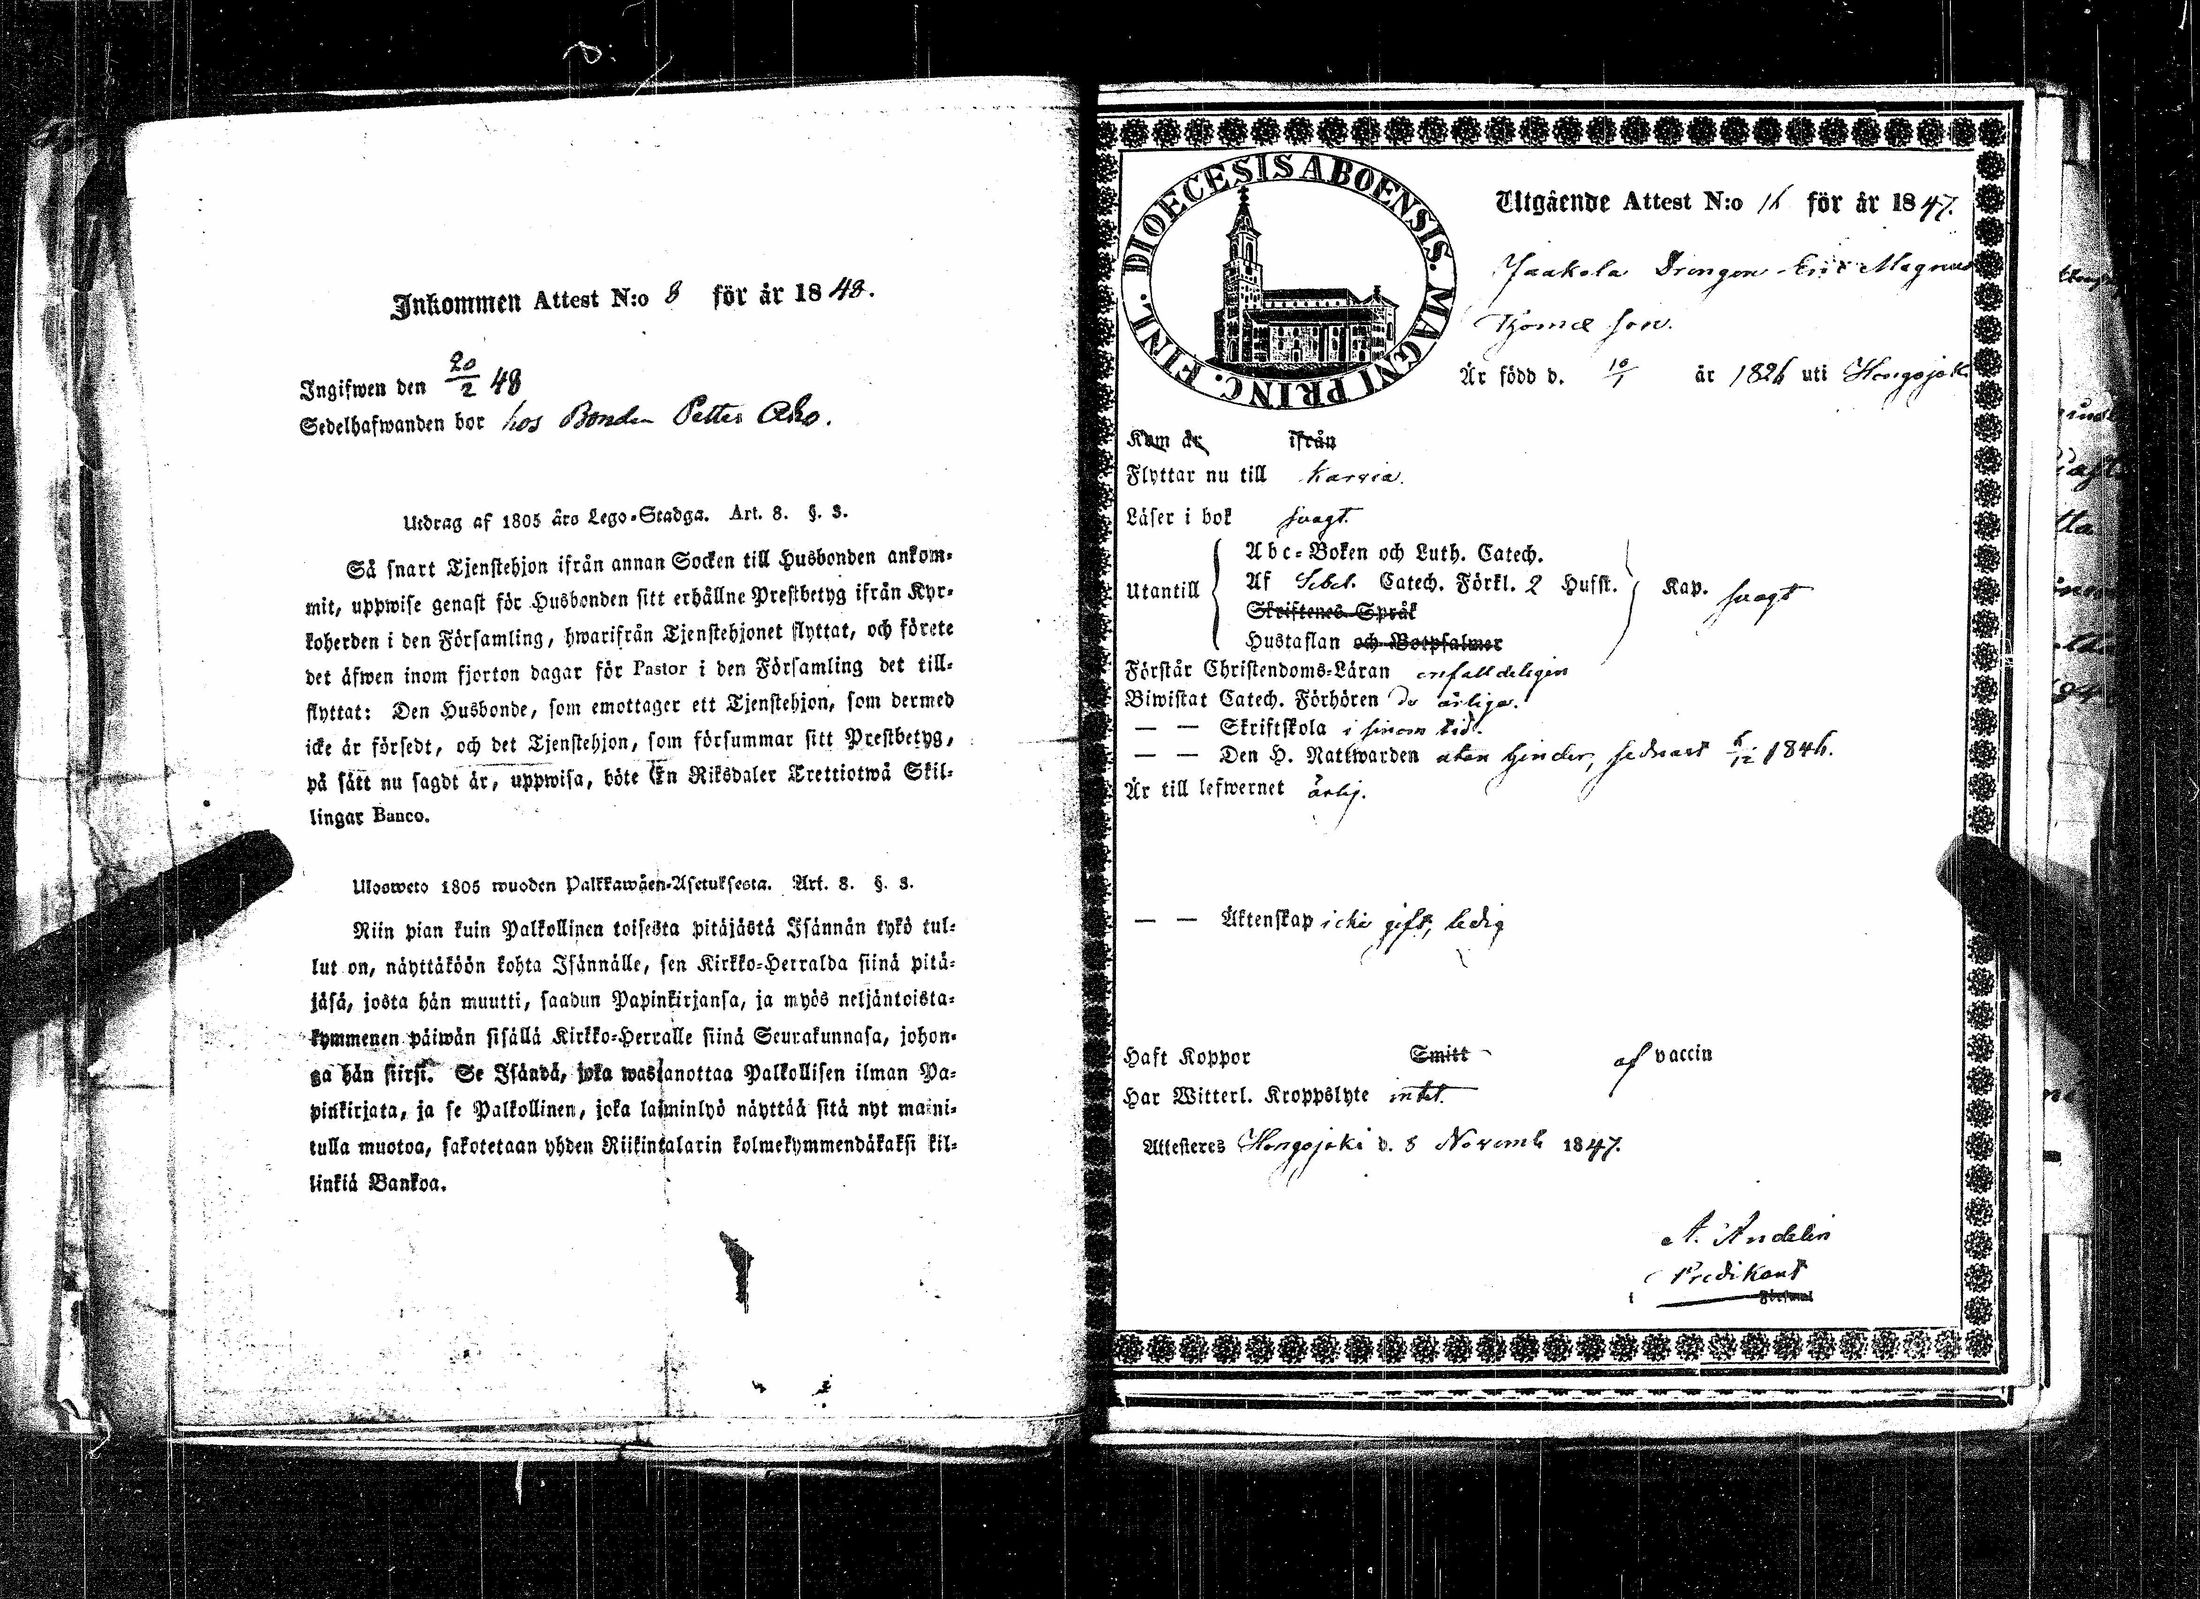 Inkommen Attest N:o 8 för år 1848.
Ingifwen den 20/2 48
Sedelhafwanden bor hos Bonden Petter Aho.
Utdrag af 1805 års Lego-Stadga. Art. 8. §. 3.
Så snart Tjenstehjon ifrån annan Socken till Husbonden ankom-
mit, uppwise genast för Husbonden sitt erhållne Prestbetyg ifrån Kyr-
koherden i den Församling, hwarifrån Tjenstehjonet flyttat, och förete
det äfwen inom fjorton dagar för Pastor i den Församling det till-
flyttat: Den Husbonde, som emottager ett Tjenstehjon, som dermed
icke är försedt, och det Tjenstehjon, som försummar sitt Prestbetyg,
på sätt nu sagdt är, uppwisa, böte En Riksdaler Trettiotwå Skil-
lingar Banco.
Ulosweto 1805 wuoden Palkkawäen-Asetuksesta. Art. 8. §. 3.
Niin pian kuin Palkollinen toisesta pitäjästä Isännän tykö tul-
lut on, näyttäköön kohta Isännälle, sen Kirkko-Herralda siinä pitä-
jäsä, josta hän muutti, saadun Papinkirjansa, ja myös neljäntoista-
kymmenen päiwän sisällä Kirkko-Herralle siinä Seurakunnasa, johon-
ga hän siirsi. Se Isändä, joka wastanottaa Palkollisen ilman Pa-
pinkirjata, ja se Palkollinen, joka laiminlyö näyttää sitä nyt maini-
tulla muotoa, sakotetaan yhden Riikintalarin kolmekymmendäkaksi kil-
linkiä Bankoa.
DIOECESIS ABOENSIS. MAGNI PRINC. FINL.
Utgående Attest N:o 16 för år 1847.
Jaakola Drengen Eric Magnus
Thomæ son.
Är född d. 10/1 år 1826 uti Hongojoki
Kom år ifrån
Flyttar nu till Karvia.
Läser i bok svagt.
Abc-Boken och Luth. Catech.
Utantill Af Sebel. Catech. Förkl. 2 Husst. Kap. svagt
Skriftenes Språk
Hustaflan och Botpsalmer
Förstår Christendoms-Läran enfalldeligen
Biwistat Catech. Förhören de årliga.
— — Skriftskola i sinom tid.
— — Den H. Nattwarden utan hinder, sednast 6/12 1846.
Är till lefwernet ärlig.
— — Äktenskap icke gift, ledig
Haft Koppor Smitt af vaccin
Har Witterl. Kroppslyte intet.
Attesteres Hongojoki d. 8 Novemb 1847.
A. Andelin
Predikant
i Församl